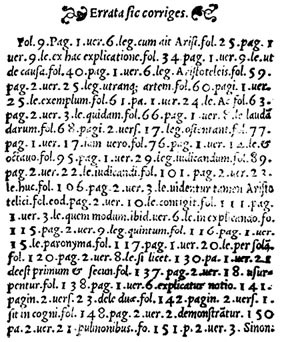 Errata sic corriges.
Fol. 9. Pag. 1. ver. 6. leg. cum ait Arist. fol. 25. pag. 1
ver. 9. le. ex hac explicatione. fol. 34. pag. 1. ver. 9. le. ut
de causa. fol. 40. pag. 1. ver. 6. leg. Aristoteleis. fol. 59.
pag. 2. ver. 25. leg. utranq; artem. fol. 60. pagi. 1. ver.
25. le. exemplum. fol. 61. pa. 1. ver. 24. le. Ac fol. 63.
pag. 2. ver. 3. le. quidam. fol. 66. pag. 1. ver. 8. le. lauda
darum. fol. 68. pagi. 2. vers. 17. leg. ostentant. fol. 77.
pag. 1. ver. 17. iam vero. fol. 76. pag. 1. ver. 12. le. &
octauo. fol. 95. pag. 1. ver. 29. leg. iudicandum. fol. 89.
pag. 2. ver. 22. le. iudicandi. fol. 101. pag. 2. ver. 23.
le. huc. fol. 106. pag. 2. ver. 3. le. uidentur tamen Aristo
telici. fol. eod. pag. 2. ver. 10. le. contigit. fol. 111. pag.
1. ver. 3. le. quem modum. ibid. ver. 6. le. in explicando. fo.
115. pag. 2. ver. 9. leg. quintum. fol. 116. pag. 1. ver.
15. le. paronyma. fol. 117. pag. 1. ver. 20. le. per solã.
fol. 120. pag. 2. ver. 8. le. si licet. 130. pa. 1. ver. 21
deest primum & secun. fol. 137. pag. 2. ver. 18. usur
pentur. fol. 138. pag. 1. ver. 6. explicatur notio. 141.
pagin. 2. vers. 23. dele duæ. fol. 142. pagin. 2. vers. 1.
sit in cogni. fol. 148. pag. 2. ver. 2. demonstrãtur. 150
pa. 2. ver. 21. pulmonibus.. fo. 151. p. 2. ver. 3. Sinon: